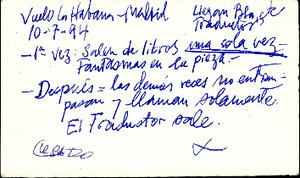 Vuelo La Habana - Madrid
10-7-94
Llegan Blas y
Traductor
- 1ª vez: salen de libros una sola vez -
Fantasmas en la pieza -
- Después = las demás veces no entran
pasan y llaman solamente.
El Traductor sale.